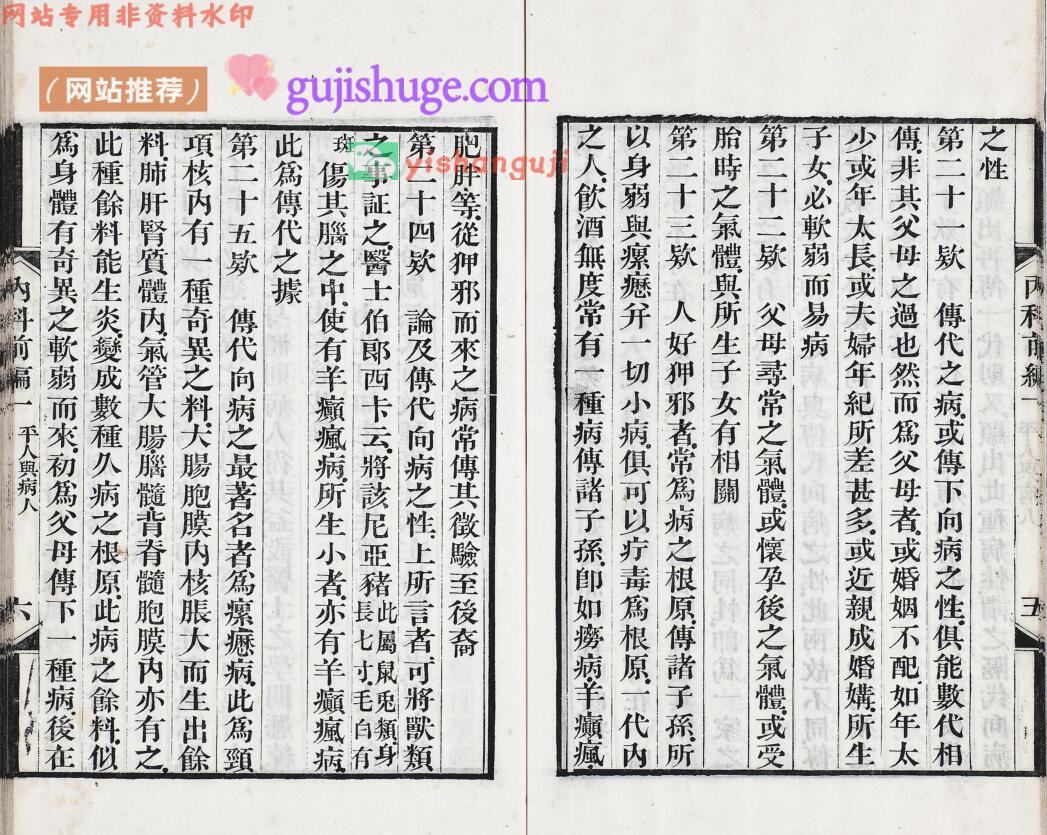 网站专用非资料水印
（网站推荐）
gujishuge.com
yishanguji
之性
第二十一欵　傳代之病、或傳下向病之性、俱能數代相
傳、非其父母之過也、然而爲父母者、或婚姻不配、如年太
少、或年太長、或夫婦年紀所差甚多、或近親成婚媾、所生
子女、必軟弱而易病
第二十二欵　父母尋常之氣體、或懷孕後之氣體、或受
胎時之氣體、與所生子女有相關
第二十三欵　人好狎邪者、常爲病之根原、傳諸子孫、所
以身弱與瘰癧、幷一切小病、俱可以疔毒爲根原、一代內
之人、飲酒無度、常有一種病傳諸子孫、卽如癆病、羊癲瘋、
五
肥胖等、從狎邪而來之病、常傳其徵驗至後裔
第二十四欵　論及傳代向病之性、上所言者、可將獸類
之事証之、醫士伯郞西卡云、將該尼亞豬此屬鼠兎類身長七寸、毛白有
斑傷其腦之中、使有羊癲瘋病、所生小者、亦有羊癲瘋病、
此爲傳代之據
第二十五欵　傳代向病之最著名者、爲瘰癧病、此爲頸
項核內有一種奇異之料、大腸胞膜內核脹大而生出餘
料、肺肝腎質體內、氣管大腸、腦髓背脊髓胞膜內亦有之、
此種餘料能生炎、變成數種久病之根原、此病之餘料、似
爲身體有奇異之軟弱而來、初爲父母傳下一種病、後在
內科前編一　平人與病人　六